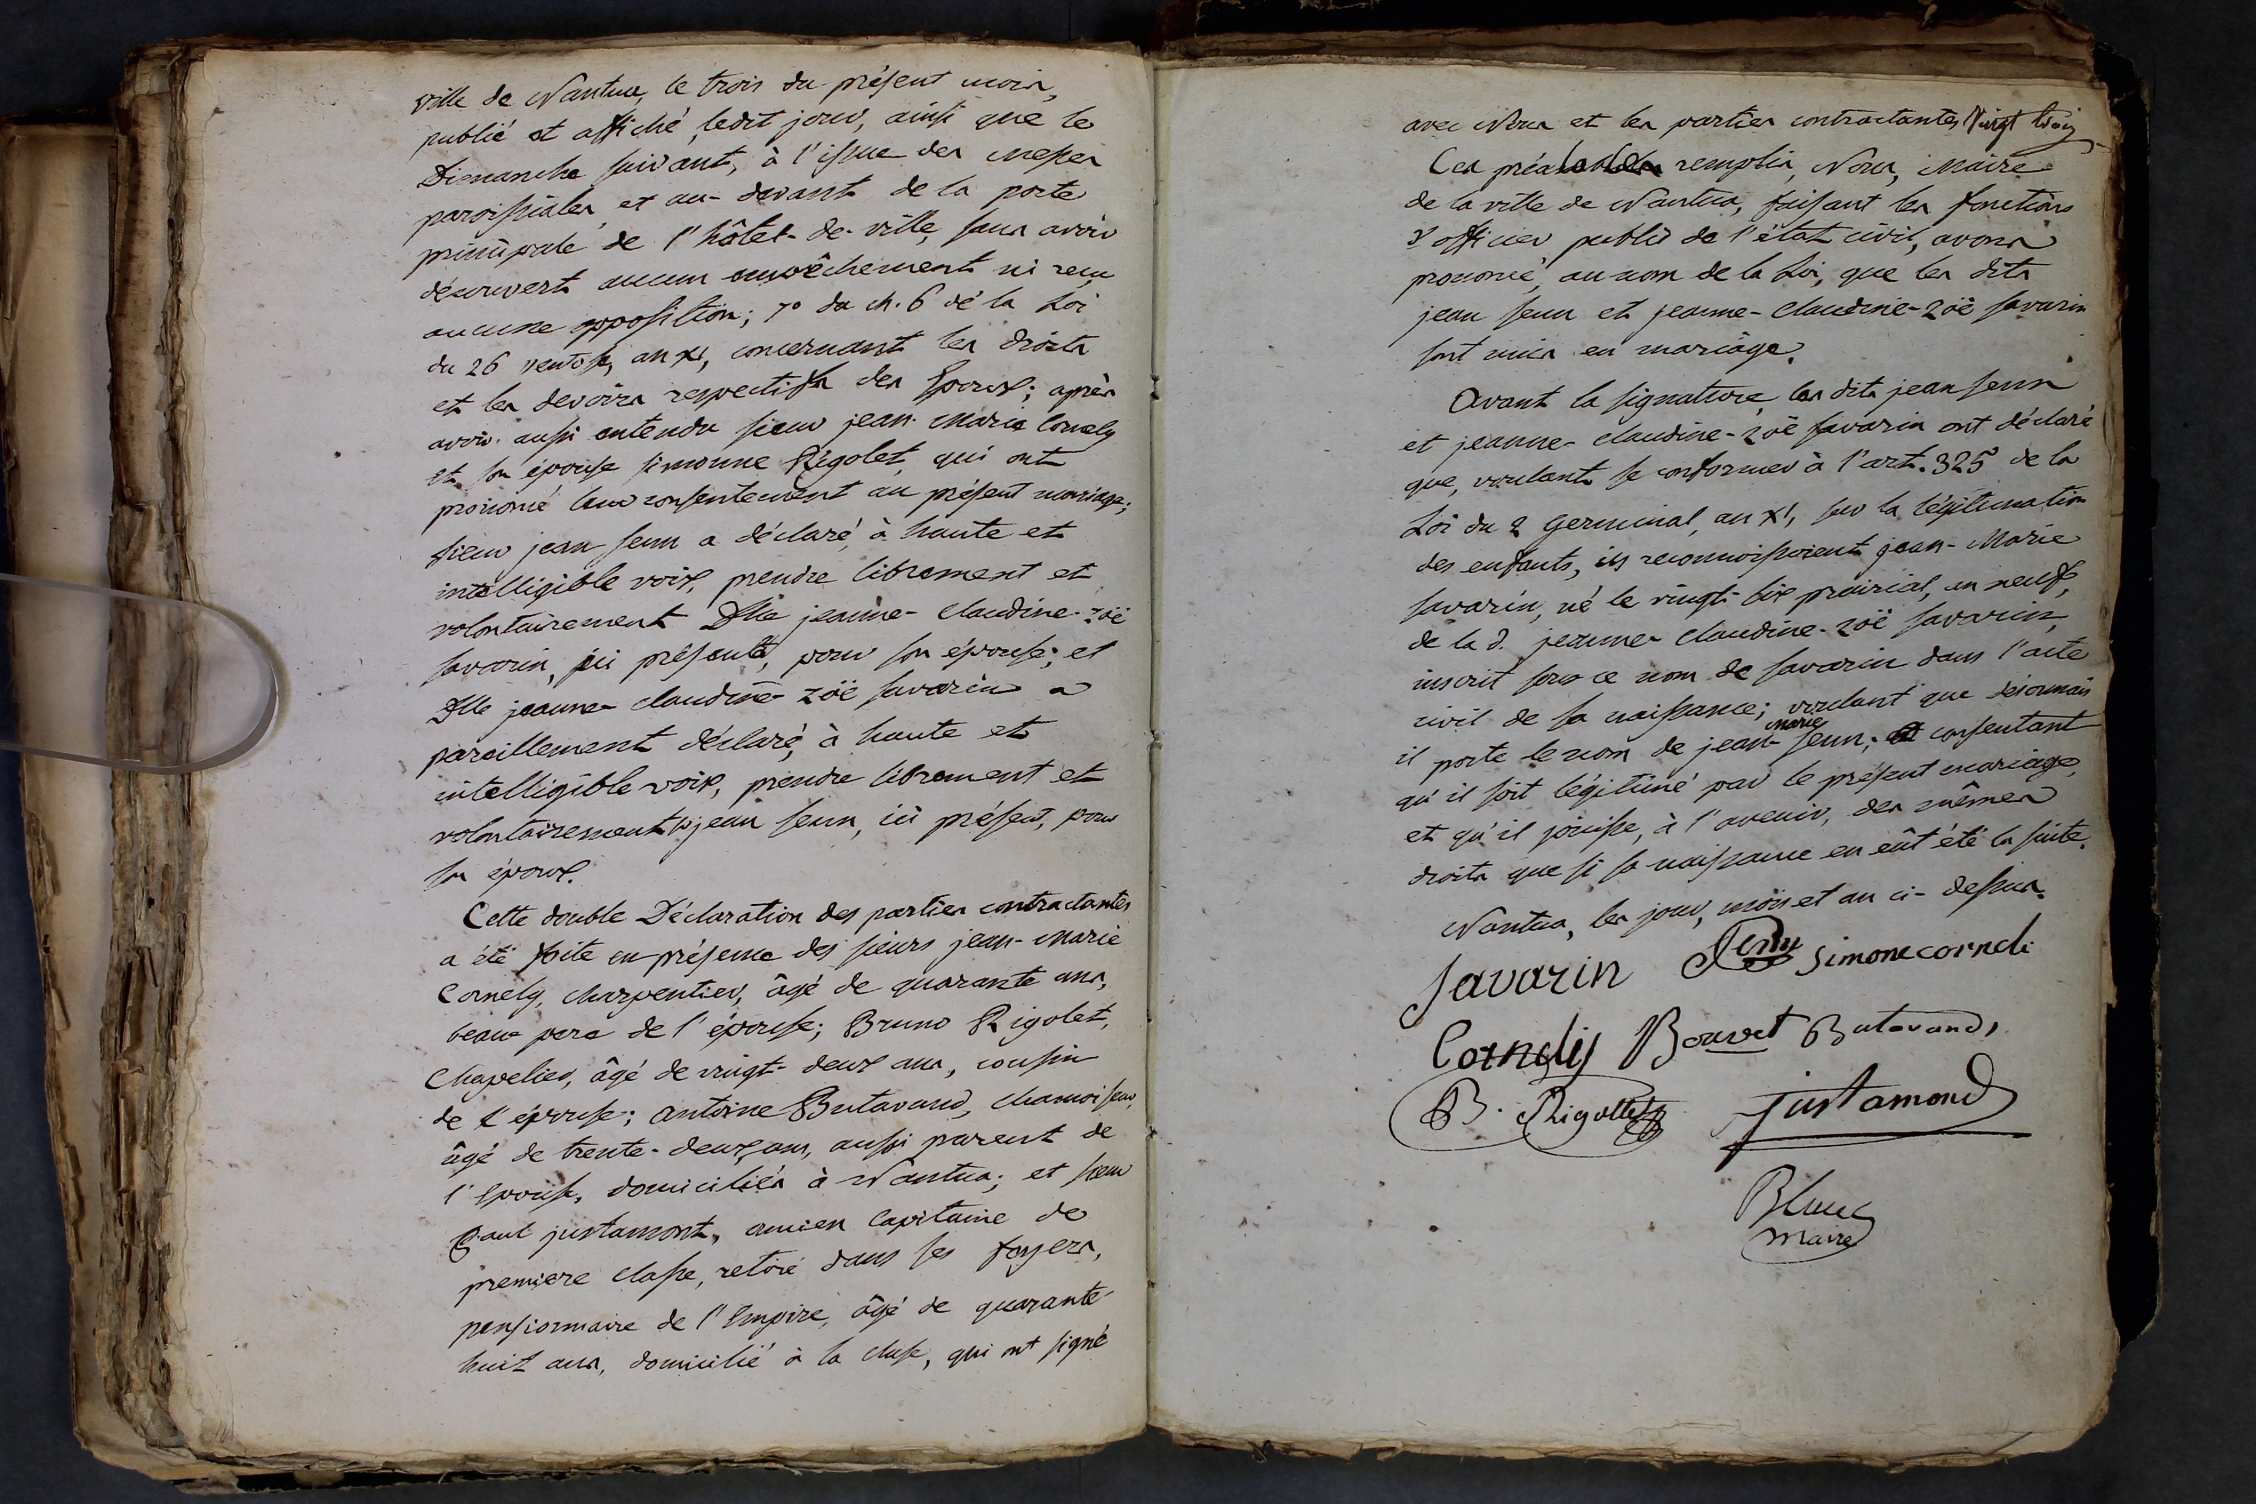 ville de Nantua, le trois du présent mois,
publié et affiché, ledit jour, ainsi que le
Dimanche suivant, à l'issue des messes
paroissiales, et au-devant de la porte
principale de l'hôtel-de-ville, sans avoir
découvert aucun empêchement ni reçu
aucune opposition; 7° du ch. 6 dé la Loi
du 26 ventose, an XI, concernant les droits
et les devoirs respectifs des Epoux; après
avoir aussi entendu sieur jean-Marie Cornely
et son épouse simonne Rigolet, qui ont
prononcé leur consentement au présent mariage;
sieur jean senn a déclaré, à haute et
intelligible voix, prendre librement et
volontairement Dlle jeanne-claudine-zöé
savarin, ici présente, pour son épouse; et
Dlle jeanne-claudine-zöé savarin a
pareillement déclaré, à haute et
intelligible voix, prendre librement et
volontairement sr. jean senn, ici présent, pour
son époux.
Cette double Déclaration des parties contractantes
a été faite en présence des sieurs jean-Marie
Cornely, charpentier, âgé de quarante ans,
beau-pere de l'épouse; Bruno Rigolet,
Chapelier, âgé de vingt-deux ans, cousin
de l'épouse; antoine Butavand, chamoiseur,
âgé de trente-deux ans, aussi parent de
l'Epouse, domiciliés à Nantua; et sieur
Paul justamont, ancien Capitaine de
premiere classe, retiré dans ses foyers,
pensionnaire de l'Empire, âgé de quarante-
huit ans, domicilié à la cluse, qui ont signé
avec Nous et les parties contractantes Vingt trois
Ces préalables remplis, Nous, Maire
de la ville de Nantua, faisant les fonctions
d'officier public de l'état civil, avons
prononcé, au nom de la Loi, que les dits
jean senn et jeanne-claudine-zöé savarin
sont unis en mariage.
Avant la signature, les dits jean senn
et jeanne-claudine-zöé savarin ont déclaré
que, voulant se conformer à l'art. 325 de la
Loi du 2 germinal, an XI, sur la légitimation
des enfants, ils reconnoissoient jean-Marie
savarin, né le vingt-six prairial, an neuf,
de la d. jeanne-claudine-zöé savarin,
inscrit sous ce nom de savarin dans l'acte
civil de sa naissance; voulant que désormais
il porte le nom de jean-Marie senn; et consentant
qu'il soit légitimé par le présent mariage,
et qu'il jouisse, à l'avenir, des mêmes
droits que si sa naissance en eût été la suite.
Nantua, les jour, mois et an ci-dessus.
Savarin Senn simone corneli
Cornelÿ Bouvet Butavand,
B. Rigollet justamond
Maire